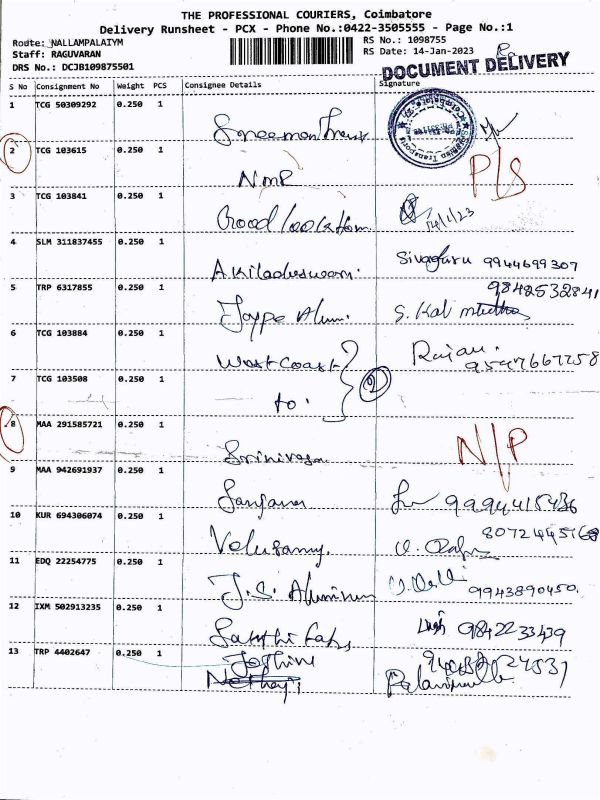 THE PROFESSIONAL COURIERS, Coimbatore
Delivery Runsheet - PCX - Phone No.:0422-3505555 - Page No.:1
Route: NALLAMPALAIYM
Staff: RAGUVARAN
DRS No.: DCJB109875501
RS No.: 1098755
RS Date: 14-Jan-2023
DOCUMENT DELIVERY
S No Consignment No Weight PCS Consignee Details Signature
1 TCG 50309292 0.250 1
2 TCG 103615 0.250 1 NMR P/S
3 TCG 103841 0.250 1 Good look 14/1/23
4 SLM 311837455 0.250 1 Akiladeswari Sivaguru 9944699307
5 TRP 6317855 0.250 1 Jaype Alum. 9842532841
6 TCG 103884 0.250 1 West Coast Rajan. 9547667258
7 TCG 103508 0.250 1 to
8 MAA 291585721 0.250 1 Srinivasan N/P
9 MAA 942691937 0.250 1 Sanjana 9994415436
10 KUR 694306074 0.250 1 Velusamy. 8072445168
11 EDQ 22254775 0.250 1 J.S. Aluminium 9943890450.
12 IXM 502913235 0.250 1 Sakthi Labs 9842233439
13 TRP 4402647 0.250 1